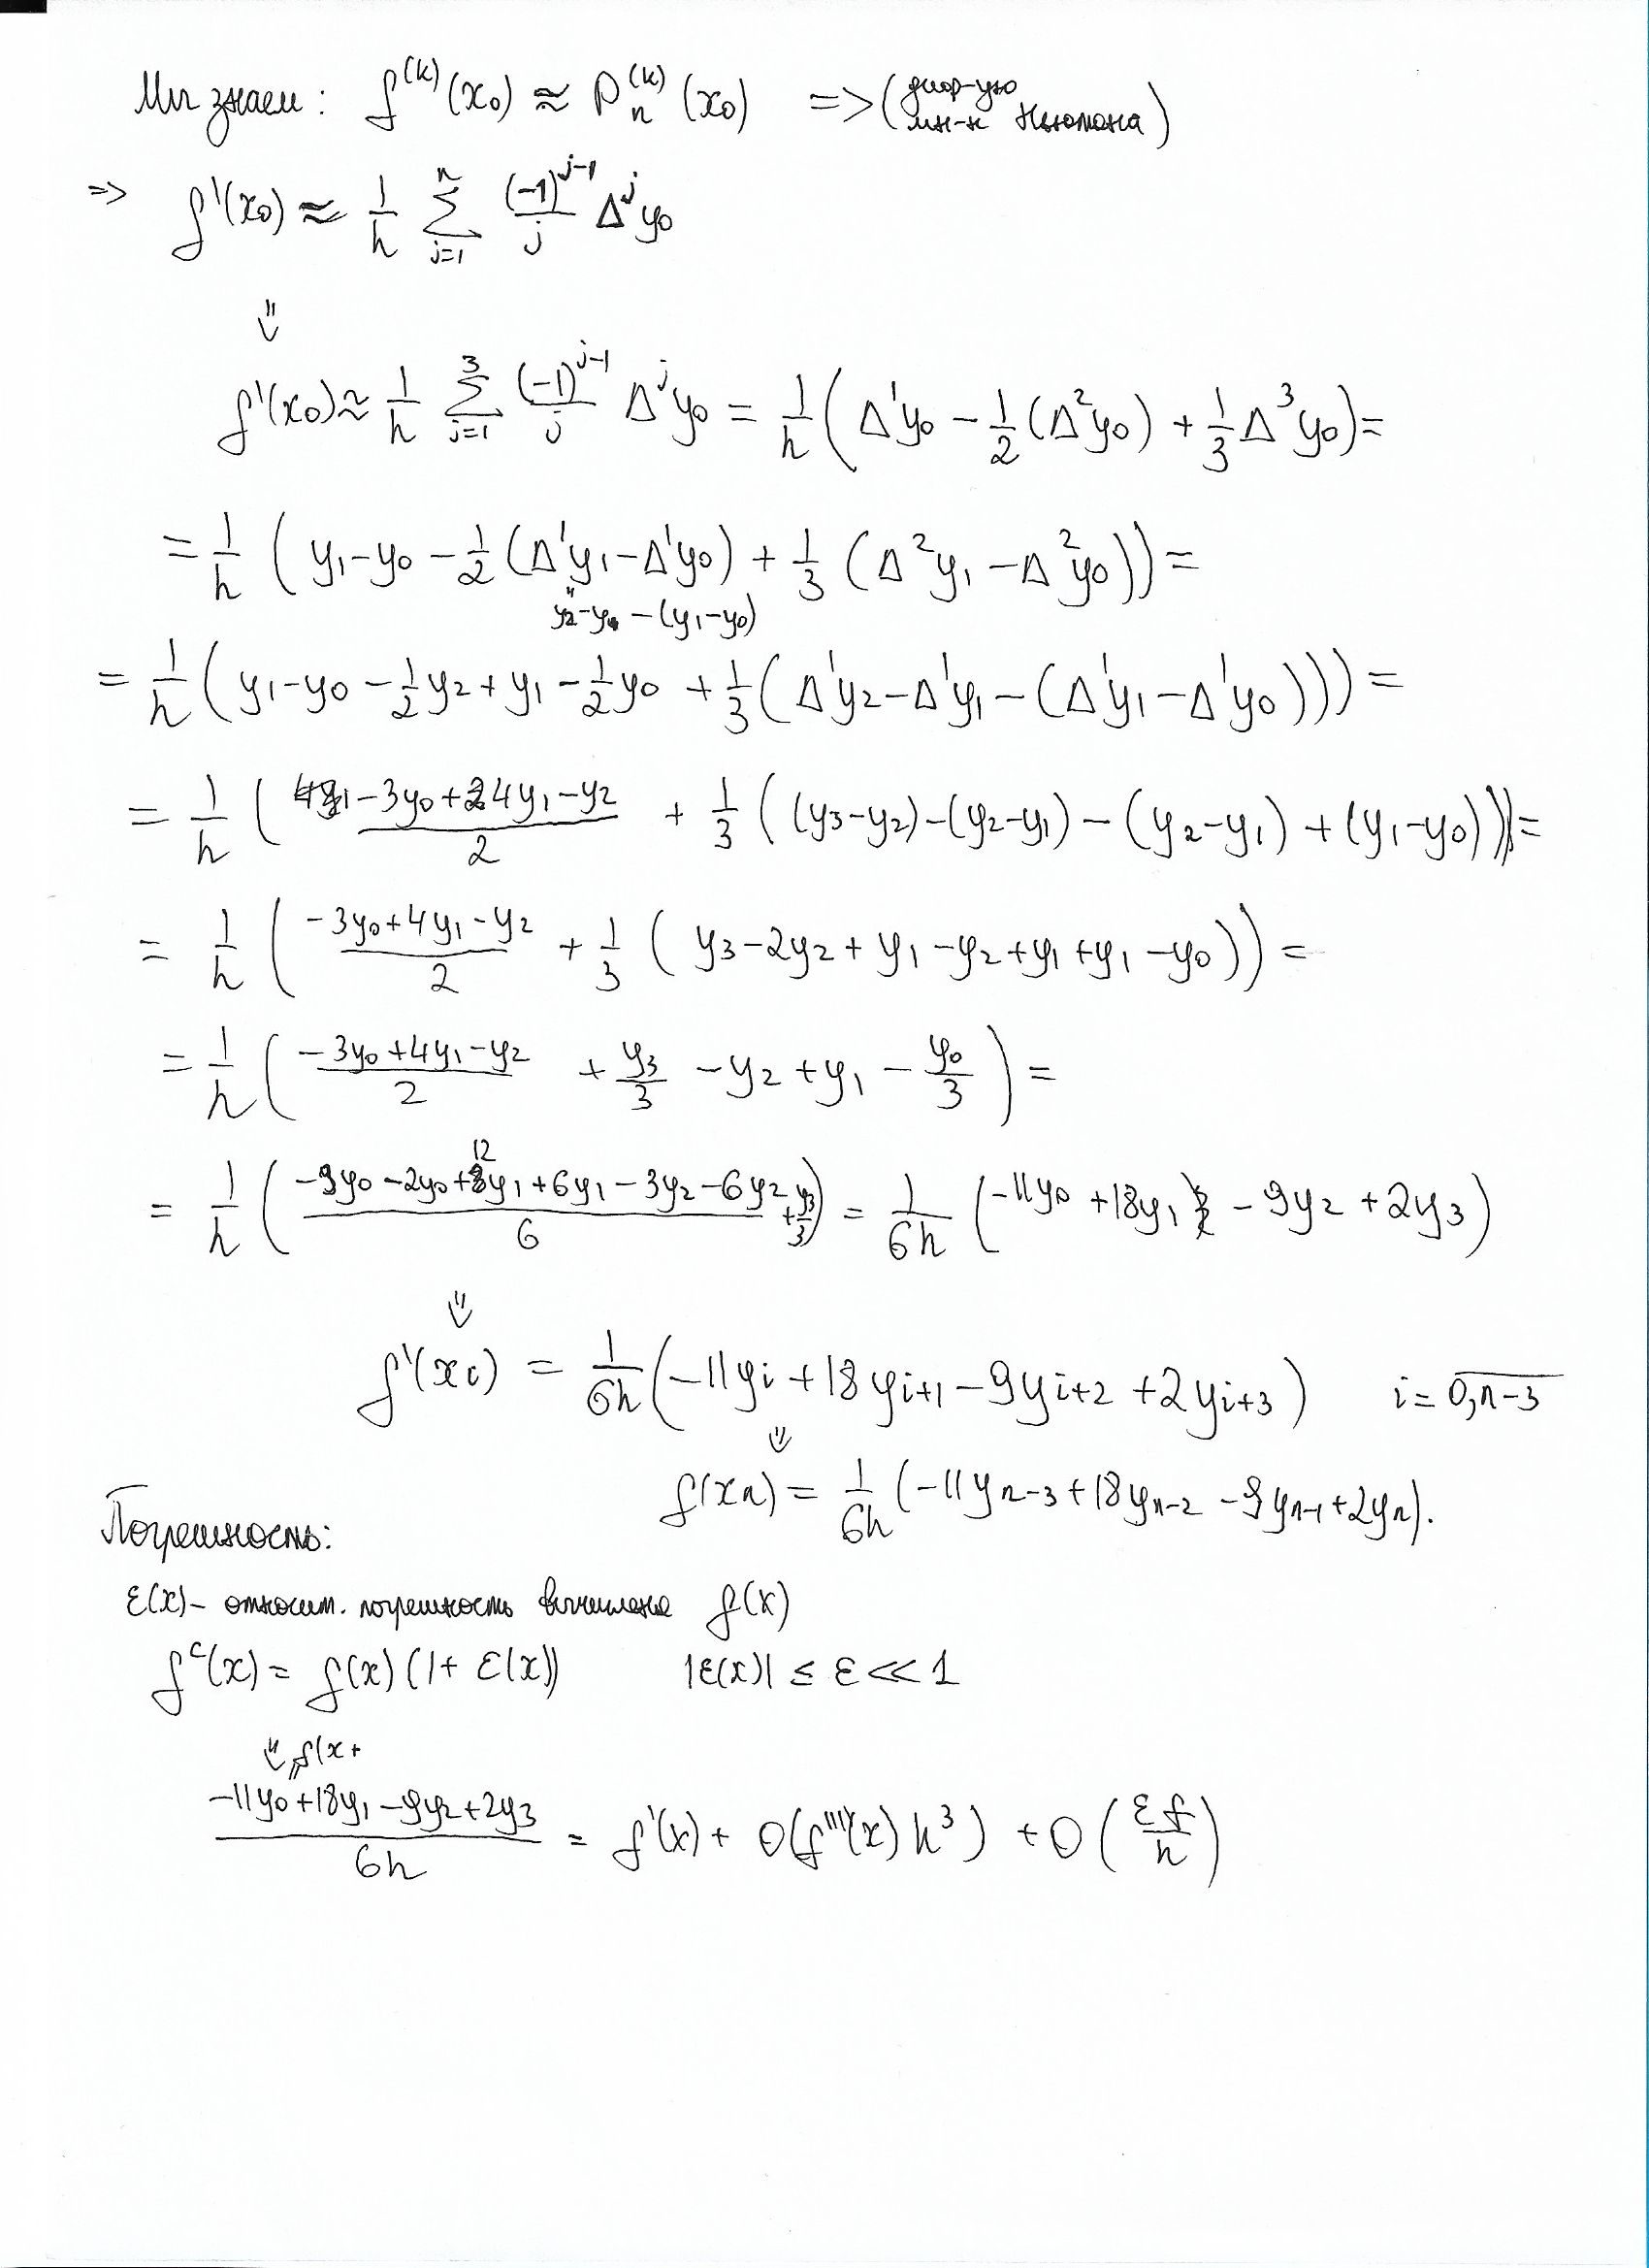 Мы знаем: f^(k)(x₀) ≈ P_n^(k)(x₀) => (диф-ую мн-н Ньютона)
=> f'(x₀) ≈ 1/h Σ_{j=1}^{n} (-1)^{j-1}/j Δ^j y₀
⇓
f'(x₀) ≈ 1/h Σ_{j=1}^{3} (-1)^{j-1}/j Δ^j y₀ = 1/h (Δ¹y₀ - 1/2 (Δ²y₀) + 1/3 Δ³y₀) =
= 1/h (y₁ - y₀ - 1/2 (Δ¹y₁ - Δ¹y₀) + 1/3 (Δ²y₁ - Δ²y₀)) =
y₂ - y₁ - (y₁ - y₀)
= 1/h (y₁ - y₀ - 1/2 y₂ + y₁ - 1/2 y₀ + 1/3 (Δ¹y₂ - Δ¹y₁ - (Δ¹y₁ - Δ¹y₀))) =
= 1/h ((-3y₀ + 4y₁ - y₂)/2 + 1/3 ((y₃ - y₂) - (y₂ - y₁) - (y₂ - y₁) + (y₁ - y₀))) =
= 1/h ((-3y₀ + 4y₁ - y₂)/2 + 1/3 (y₃ - 2y₂ + y₁ - y₂ + y₁ + y₁ - y₀)) =
= 1/h ((-3y₀ + 4y₁ - y₂)/2 + y₃/3 - y₂ + y₁ - y₀/3) =
= 1/h ((-9y₀ - 2y₀ + 12y₁ + 6y₁ - 3y₂ - 6y₂)/6 + y₃/3) = 1/6h (-11y₀ + 18y₁ - 9y₂ + 2y₃)
⇓
f'(xᵢ) = 1/6h (-11yᵢ + 18yᵢ₊₁ - 9yᵢ₊₂ + 2yᵢ₊₃) i = 0,n-3
⇓
f(xₙ) = 1/6h (-11yₙ₋₃ + 18yₙ₋₂ - 9yₙ₋₁ + 2yₙ).
Погрешность:
ε(x) - относит. погрешность вычислена f(x)
f^c(x) = f(x)(1 + ε(x)) |ε(x)| ≤ ε << 1
⇓ f(x+
(-11y₀ + 18y₁ - 9y₂ + 2y₃)/6h = f'(x) + O(f''''(x)h³) + O(εf/h)